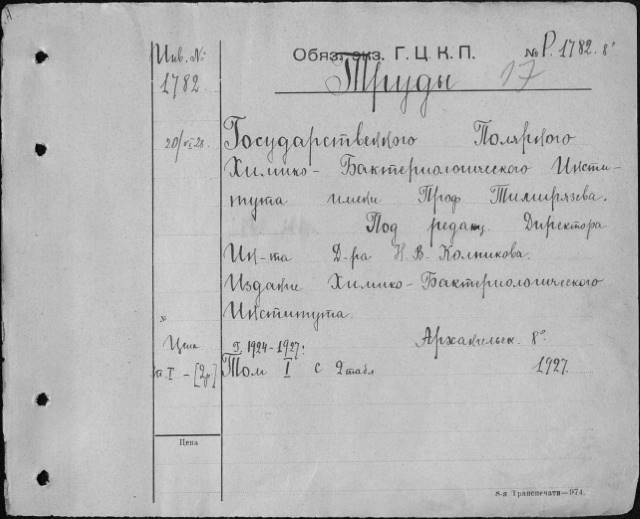 Инв. №
1782
Обяз. экз. Г.Ц.К.П.
№ Р. 1782. 8°
Труды
17
20/VI 28.
Государственного Полярного
Химико-Бактериологического Инсти-
тута имени Проф Тимирязева.
Под редакц. Директора
Ин-та Д-ра Н. В. Колпикова.
Издание Химико-Бактериологического
Института.
№
Цена
т I - [2р]
I, 1924-1927:
Архангельск. 8°
Том I с 2 табл
1927.
Цена
8-я Транспечати—974.